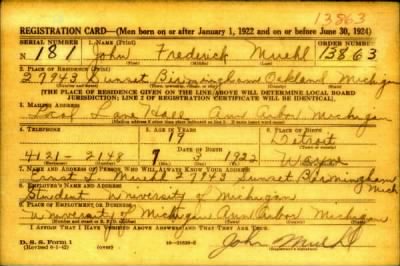 13863
REGISTRATION CARD—(Men born on or after January 1, 1922 and on or before June 30, 1924)
SERIAL NUMBER 1. NAME (Print) ORDER NUMBER
N 181 John Frederick Muehl 13863
(First) (Middle) (Last)
2. PLACE OF RESIDENCE (Print)
27943 Sunset Birmingham Oakland Michigan
[THE PLACE OF RESIDENCE GIVEN ON THE LINE ABOVE WILL DETERMINE LOCAL BOARD
JURISDICTION; LINE 2 OF REGISTRATION CERTIFICATE WILL BE IDENTICAL]
3. MAILING ADDRESS
Lane Ann Arbor Michigan
4. TELEPHONE 5. AGE IN YEARS 6. PLACE OF BIRTH
19 Detroit
DATE OF BIRTH
7 3 1922 Wayne
7. NAME AND ADDRESS OF PERSON WHO WILL ALWAYS KNOW YOUR ADDRESS
Muehl 27943 Sunset Birmingham
Mich
8. EMPLOYER'S NAME AND ADDRESS
Student University of Michigan
9. PLACE OF EMPLOYMENT OR BUSINESS
University of Michigan Ann Arbor Michigan
I AFFIRM THAT I HAVE VERIFIED ABOVE ANSWERS AND THAT THEY ARE TRUE.
D. S. S. Form 1
(Revised 6-1-42) (over) John Muehl